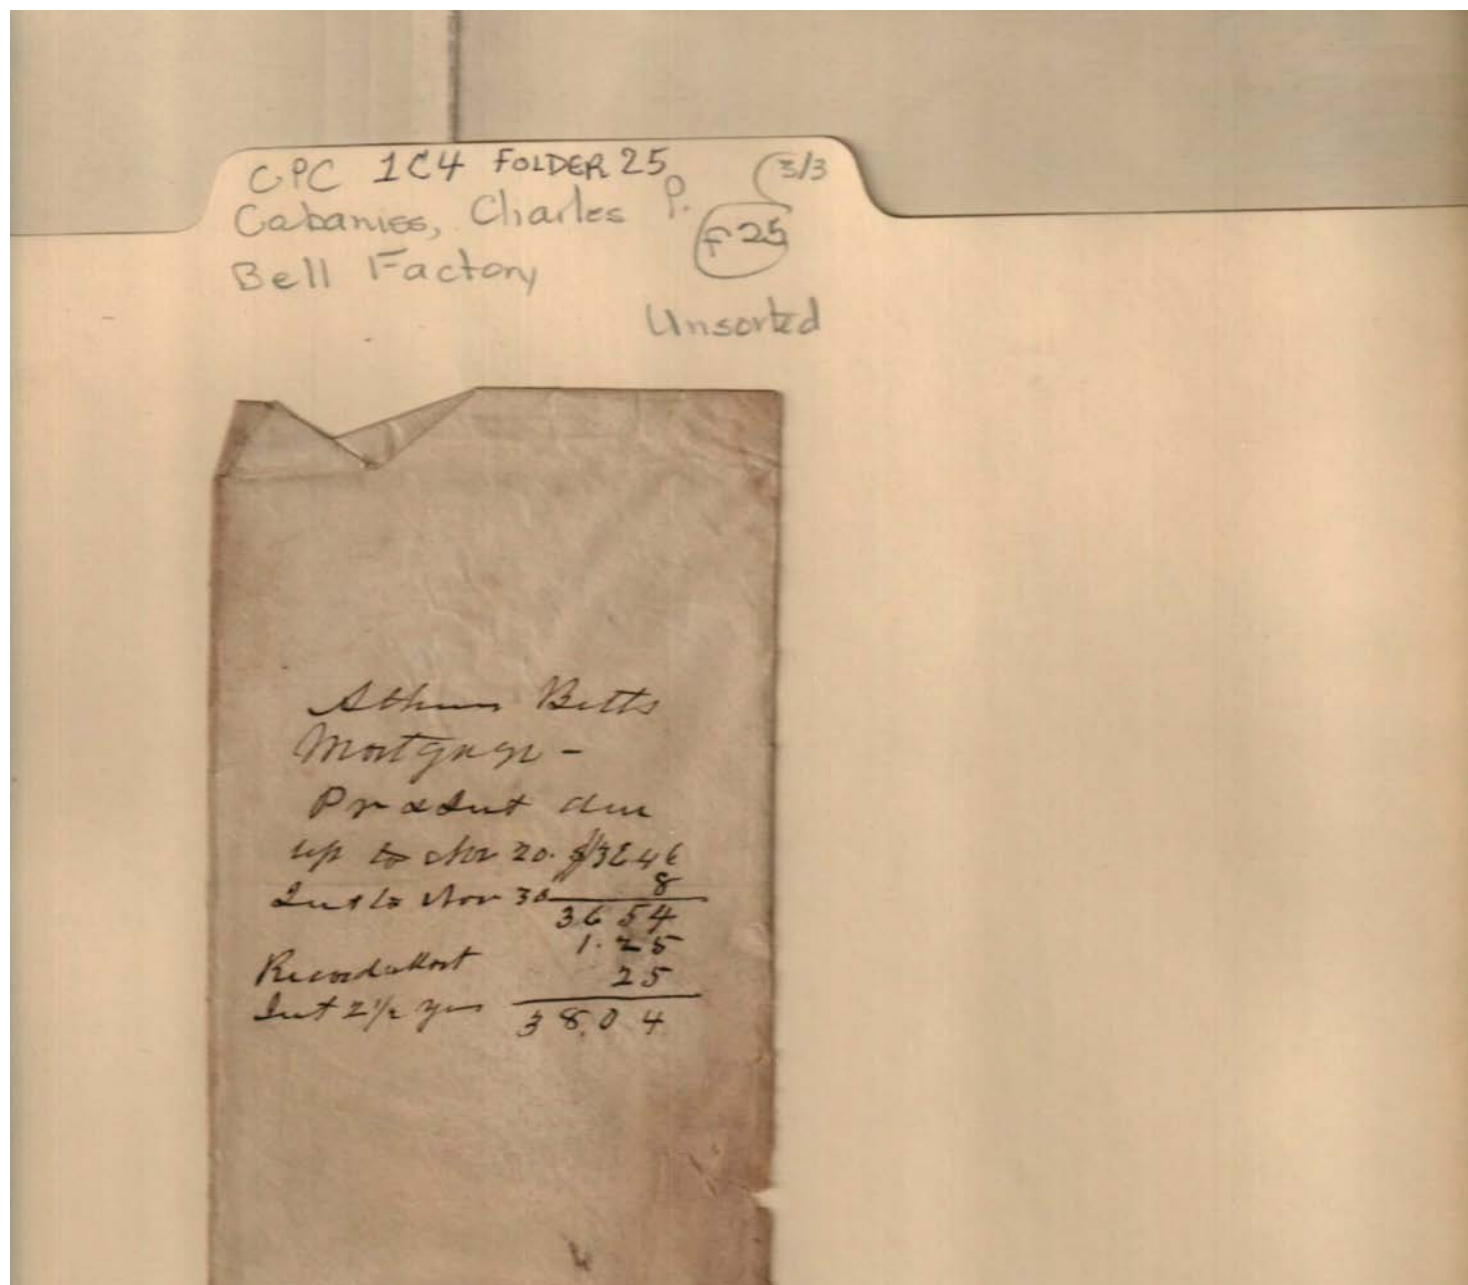 CPC 1C4 FOLDER 25 3/3
Cabaniss, Charles P. F25
Bell Factory
Unsorted
Betts
Mortgage -
Pr & Int due
up to Nov 20. $3646
8
Int to Nov 30
3654
1.25
Record &
25
Int 2 1/2 yrs
38.04